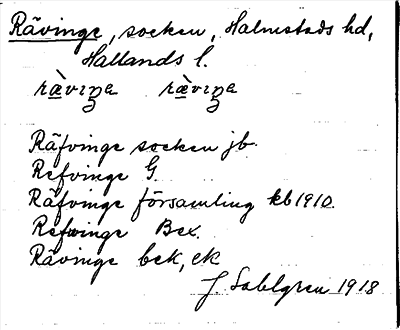 Rävinge, socken, Halmstads hd,
Hallands l.
rä̀viŋa rä̀viŋa
Räfvinge socken jb.
Refvinge G.
Räfvinge församling kb 1910.
Refwinge Bex.
Rävinge bek, ek
J. Sahlgren 1918